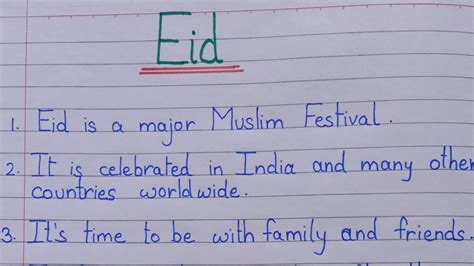 Eid
1. Eid is a major Muslim Festival.
2. It is celebrated in India and many other
countries worldwide.
3. It's time to be with family and friends.